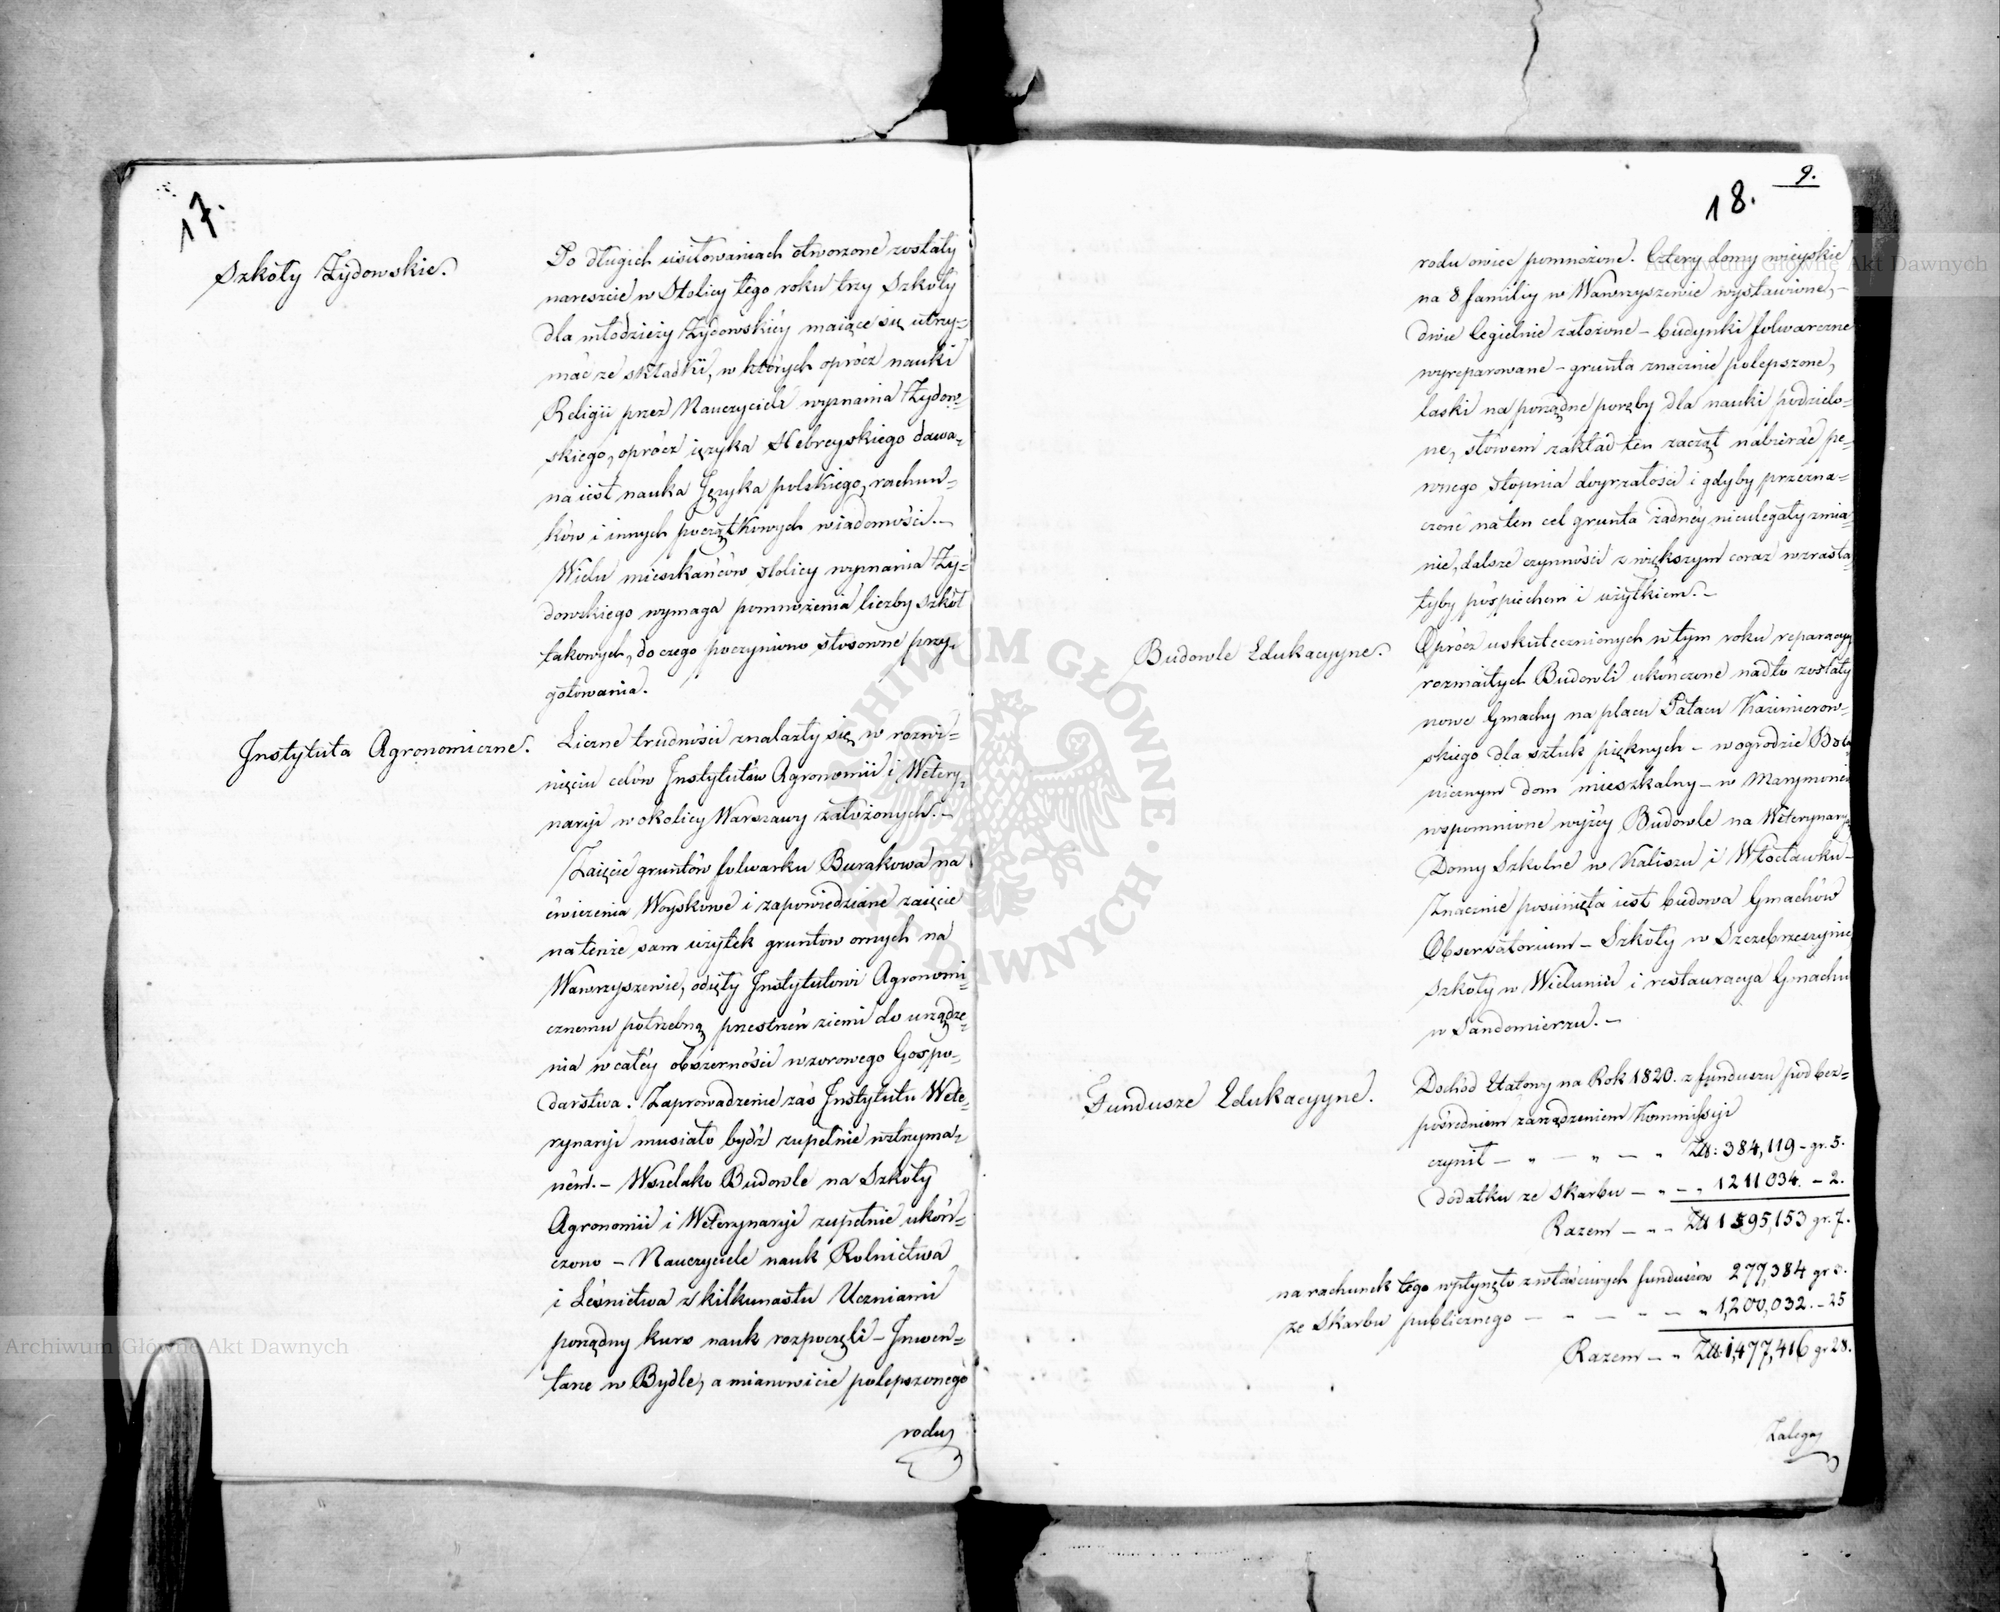 17.
Szkoły Żydowskie.
Po długich usiłowaniach otworzone zostały
nareszcie w Stolicy tego roku trzy Szkoły
dla młodzieży Żydowskiéy maiące się utrzy-
mać ze składki, w których oprócz nauki
Religii przez Nauczyciela wyznania Żydow-
skiego, oprócz ięzyka Hebreyskiego dawa-
na iest nauka Języka polskiego, rachun-
ków i innych początkowych wiadomości.—
Wielu mieszkańców stolicy wyznania Ży-
dowskiego wymaga pomnożenia liczby szkół
takowych, do czego poczyniono stosowne przy-
gotowania.
Instytuta Agronomiczne.
Liczne trudności znalazły się w rozwi-
nięciu celów Instytutów Agronomii i Wetery-
naryi w okolicy Warszawy założonych.—
Zaięcie gruntów folwarku Burakowa na
ćwiczenia Woyskowe i zapowiedziane zaięcie
na tenże sam użytek gruntów ornych na
Wawrzyszewie, odięty Instytutowi Agronomi-
cznemu potrzebną przestrzeń ziemi do urządze-
nia w całéy obszerności wzorowego Gospo-
darstwa. Zaprowadzenie zaś Instytutu Wete-
rynaryi musiało bydź zupełnie wstrzyma-
ném.— Wszelako Budowle na Szkoły
Agronomii i Weterynaryi zupełnie ukoń-
czono — Nauczyciele nauk Rolnictwa
i Leśnictwa z kilkunastu Uczniami
porządny kurs nauk rozpoczęli — Inwen-
tarz w Bydle, a mianowicie polepszonego
rodu
9.
18.
rodu owiec pomnożone. Cztery domy wieyskie
na 8 familiy w Wawrzyszewie wystawione,—
dwie Cegielnie założone — budynki folwarczne
wyreparowane — grunta znacznie polepszone,
laski na porządne poręby dla nauki podzielo-
ne, słowem zakład ten zaczął nabierać pe-
wnego stopnia doyrzałości i gdyby przezna-
czone na ten cel grunta żadnéy nieuległy zmia-
nie, dalsze czynności z większym coraz wzrasta-
łyby pośpiechem i użytkiem.—
Budowle Edukacyyne.
Oprócz uskutecznionych w tym roku reparacyy
rozmaitych Budowli ukończone nadto zostały
nowe Gmachy na placu Pałacu Kazimierow-
skiego dla sztuk pięknych — w ogrodzie Bota-
nicznym dom mieszkalny — w Marymoncie
wspomnione wyżéy Budowle na Weterynaryą
Domy Szkolne w Kaliszu i Włocławku —
Znacznie posunięta iest budowa Gmachów
Observatorium — Szkoły w Szczebrzeszynie
szkoły w Wieluniu i restauracya Gmachu
w Sandomierzu.—
Fundusze Edukacyyne.
Dochód Etatowy na Rok 1820. z funduszu pod bez-
pośredniem zarządzeniem Kommissyi
czynił — " — " — " Zł: 384,119 — gr. 5.
dodatku ze skarbu — " — " 1211034. — 2.
Razem — " — Zł 1595,153 gr. 7.
na rachunek tego wpłynęło z właściwych funduszów 277,384 gr 3.
ze skarbu publicznego — " — " — " 1,200,032. — 25
Razem — " Zł: 1,477,416 gr 28.
Zalega
Archiwum Główne Akt Dawnych
Archiwum Główne Akt Dawnych
ARCHIWUM GŁÓWNE AKT DAWNYCH